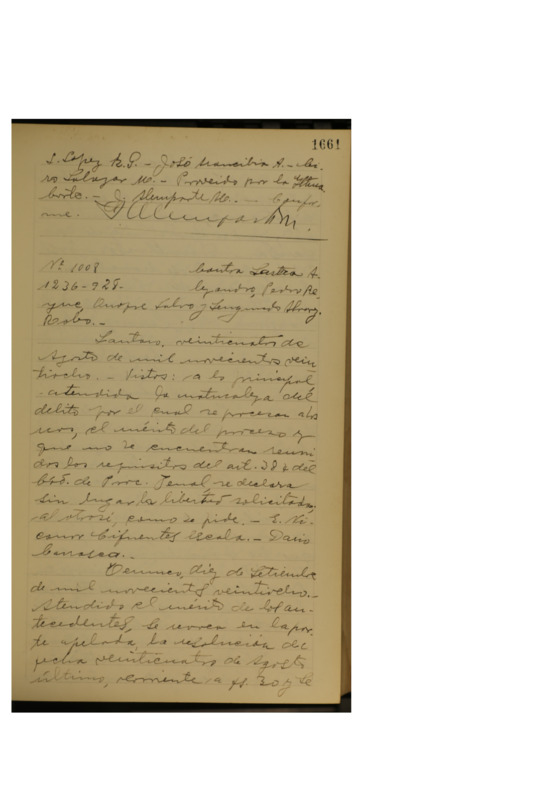 1661
S. López R. G. – José Mancibia A. – 
ro Salazar M. – Proveído por la Iltma
Corte. – J. Alemparte M. – Confor-
me.
Nº 1008 Contra Lastra A-
1236-928- lejandro, Pedro Re-
yes, Onofre Salvo y Segundo
Robo. –
Lautaro, veinticuatro de
Agosto de mil novecientos vein
tiocho. – Vistos: a lo principal
atendida la naturaleza del
delito por el cual se procesan a los
reos, el mérito del proceso y
que no se encuentran reuni
dos los requisitos del art. del
Cód. de Proc. Penal se declara
sin lugar la libertad solicitada;
al otrosí, como se pide. – E. Ni-
canor Cifuentes Escala. – Dario
Carrasco. –
Temuco, diez de Setiembre
de mil novecientos veintiocho. –
Atendido el mérito de los an-
tecedentes, se revoca en la par-
te apelada la resolución de
fecha veinticuatro de Agosto
último, corriente a fs. 30 y se